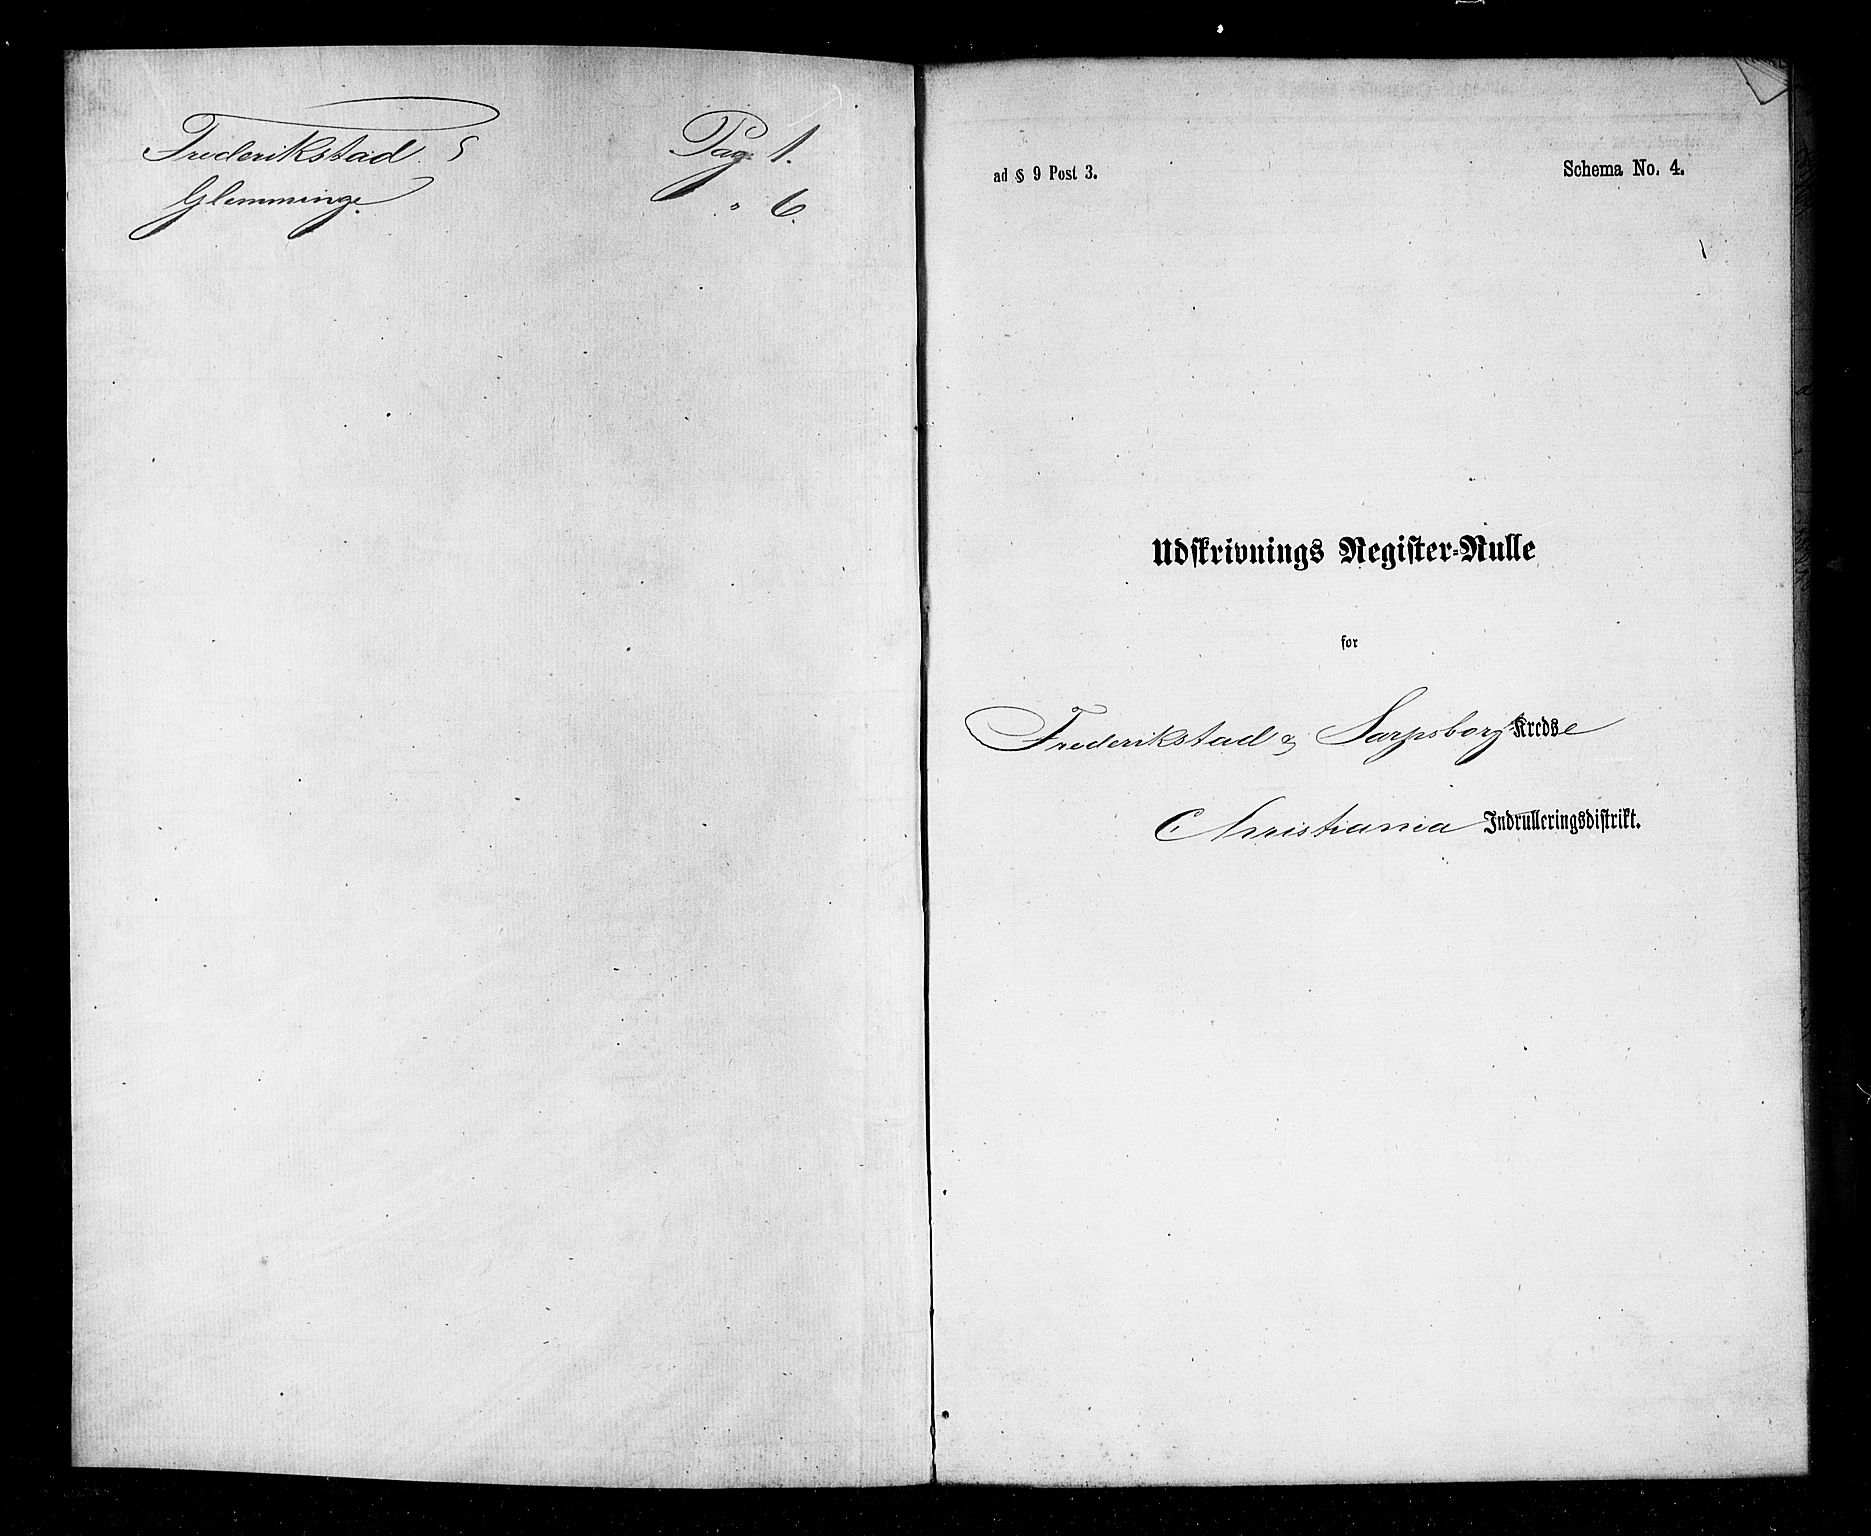 Frederikstad Pag: 1.
Glemminge. " 6.
ad § 9 Post 3.
Schema No. 4.
Udskrivnings Register-Rulle
for
Frederikstad & Sarpsborg Kredse
Christiania Indrulleringsdistrikt.